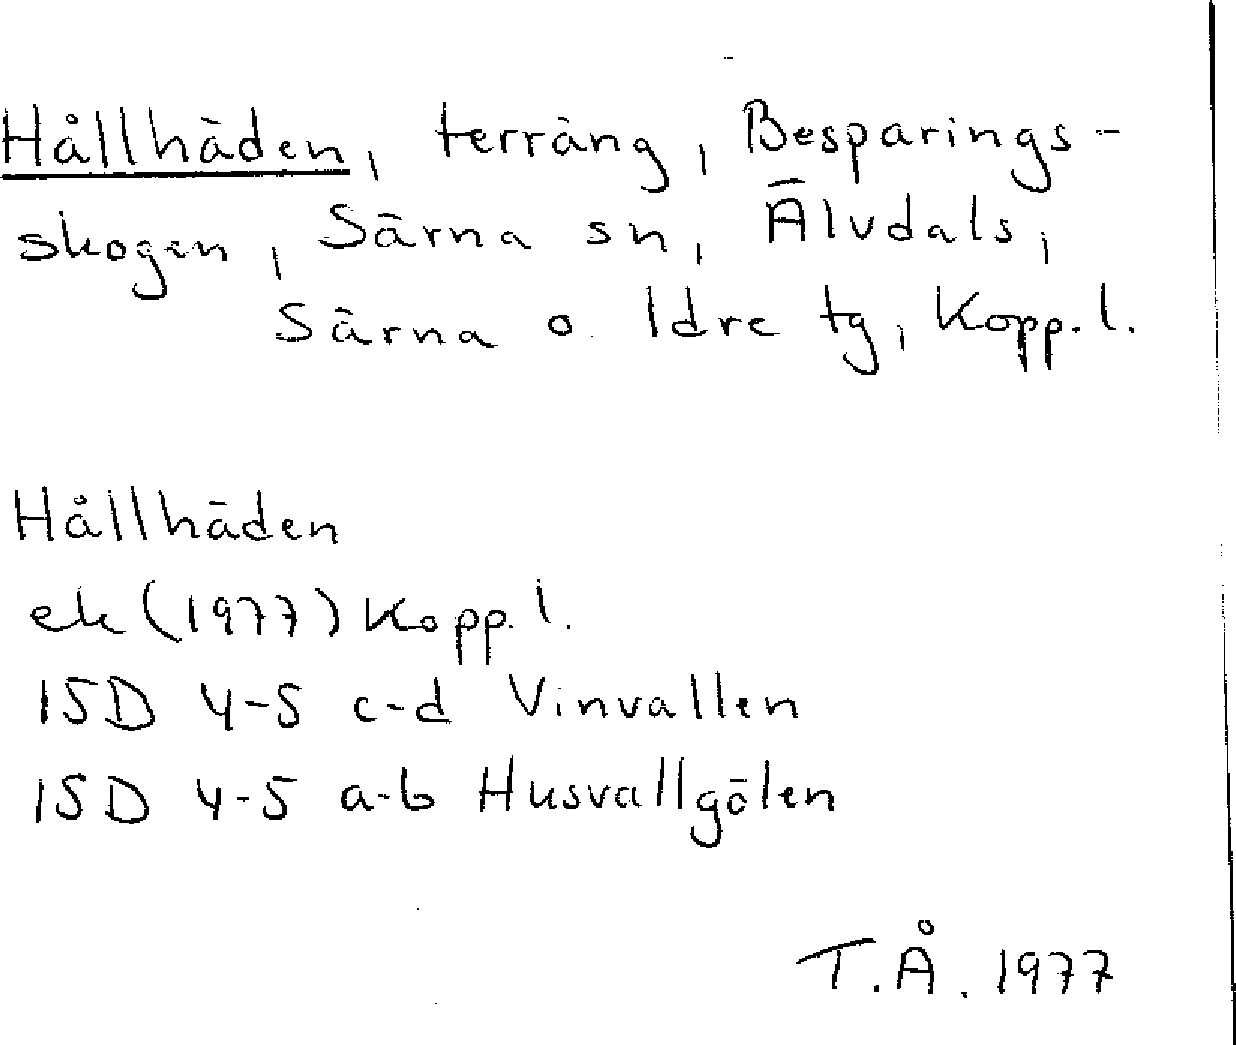 Hållhäden, terräng, Besparings-
skogen, Särna sn, Älvdals,
Särna o. Idre tg, Kopp.l.
Hållhäden
ek (1977) Kopp.l.
15D 4-5 c-d Vinvallen
15D 4-5 a-b Husvallgölen
T.Å. 1977